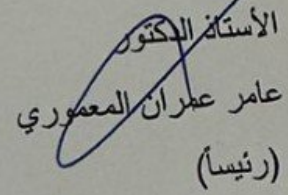 الأستاذ الدكتور
عامر عمران المعموري
(رئيساً)